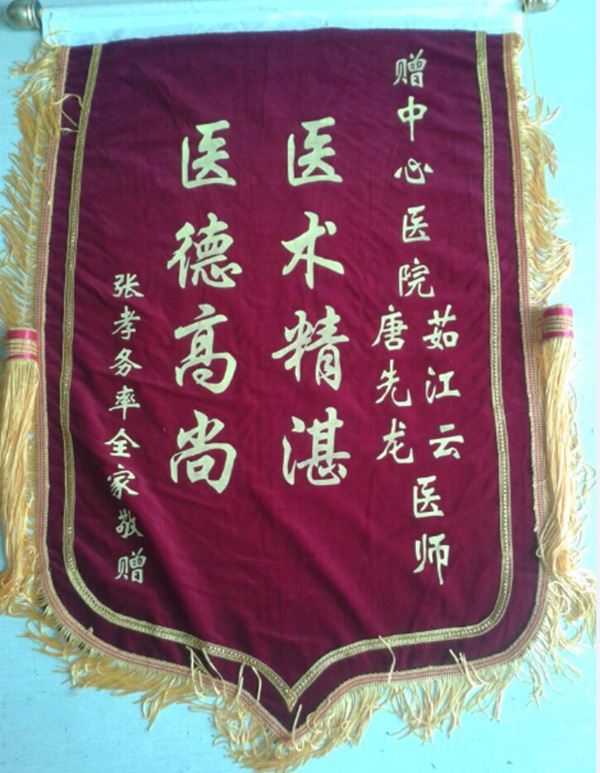 赠中心医院茹江云
唐先龙
医师
医术精湛
医德高尚
张孝务率全家敬赠